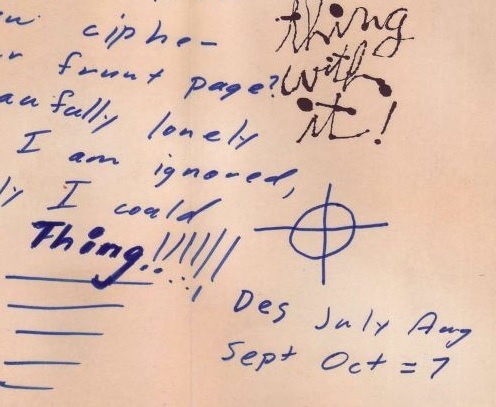 thing
with
it!
ciphe-
front page?
lonely
I am ignored,
I could
Thing!!!!!!
Des July Aug
Sept Oct = 7